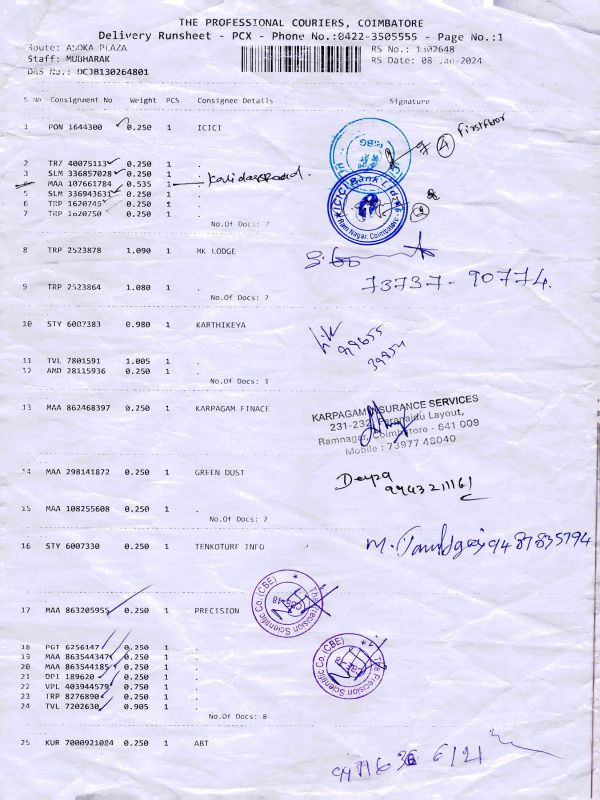 THE PROFESSIONAL COURIERS, COIMBATORE
Delivery Runsheet - PCX - Phone No.:0422-3505555 - Page No.:1
Route: ASOKA PLAZA RS No.: 1302648
Staff: MUBHARAK RS Date: 08 Jan-2024
DRS No.: DCJB130264801
S No Consignment No Weight PCS Consignee Details Signature
1 PON 1644300 0.250 1 ICICI
First floor
A
2 TRZ 40075113 0.250 1 .
3 SLM 336857028 0.250 1 .
4 MAA 107661784 0.535 1
5 SLM 336943631 0.250 1 .
6 TRP 1620749 0.250 1 .
7 TRP 1620750 0.250 1 .
ICICI
Ram Nagar, Coimbatore
No.Of Docs: 7
8 TRP 2523878 1.090 1 MK LODGE
73737-90774.
9 TRP 2523864 1.080 1 .
No.Of Docs: 2
10 STY 6007383 0.980 1 KARTHIKEYA
11 TVL 7801591 1.005 1 .
12 AMD 28115936 0.250 1 .
No.Of Docs: 3
13 MAA 862468397 0.250 1 KARPAGAM FINACE
KARPAGAM INSURANCE SERVICES
231-232, Layout,
Ramnagar, Coimbatore - 641 009
Mobile : 73977 48040
14 MAA 298141872 0.250 1 GREEN DUST
Deepa
9943211161
15 MAA 108255608 0.250 1 .
No.Of Docs: 2
16 STY 6007330 0.250 1 TENKOTURF INFO
9487835794
17 MAA 863205955 0.250 1 PRECISION
The Precision Scientific Co. (CBE)
18 PGT 6256147 0.250 1 .
19 MAA 863544347 0.250 1 .
20 MAA 863544185 0.250 1 .
21 DPI 189620 0.250 1 .
22 VPL 403944579 0.750 1 .
23 TRP 8276890 0.250 1 .
24 TVL 7202630 0.905 1 .
The Precision Scientific Co. (CBE)
No.Of Docs: 8
25 KUR 7000921084 0.250 1 ABT